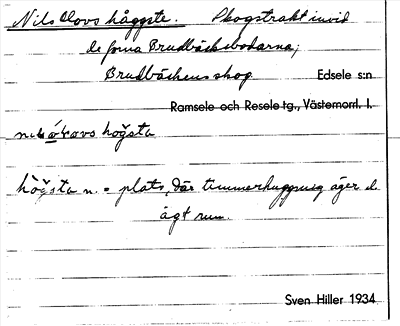 Nils Olovs håggste. Skogstrakt invid
de forna Brudbäcksbodarna;
Brudbäckens skog Edsele s:n
Ramsele och Resele tg., Västernorrl. l.
hòg̀sta n. = plats, där timmerhuggning äger el.
ägt rum.
Sven Hiller 1934